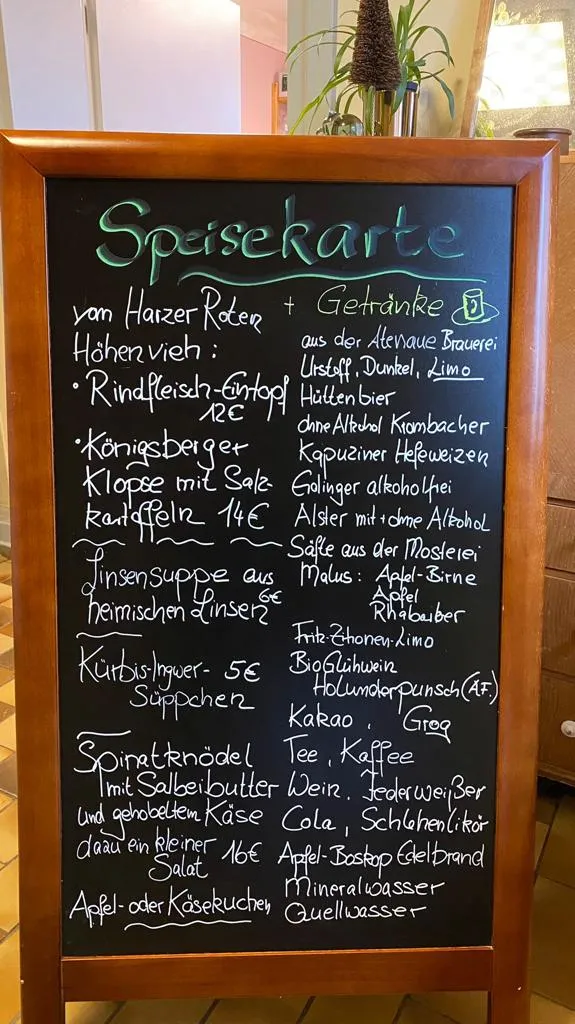 Speisekarte
vom Harzer Roten
Höhenvieh :
• Rindfleisch-Eintopf
12€
• Königsberger
Klopse mit Salz-
kartoffeln 14€
Linsensuppe aus
heimischen Linsen 6€
Kürbis-Ingwer- 5€
Süppchen
Spinatknödel
mit Salbeibutter
und gehobeltem Käse
dazu ein kleiner
Salat 16€
Apfel- oder Käsekuchen
+ Getränke
aus der Brauerei
Urstoff, Dunkel, Limo
Hüttenbier
ohne Alkohol Krombacher
Kapuziner Hefeweizen
alkoholfrei
Alster mit + ohne Alkohol
Säfte aus der Mosterei
Malus : Apfel-Birne
Apfel
Rhabarber
Fritz-Zitronen-Limo
BioGlühwein
Holunderpunsch (A.F.)
Kakao , Grog
Tee , Kaffee
Wein , Federweißer
Cola , Schlehenlikör
Apfel-Boskop Edelbrand
Mineralwasser
Quellwasser